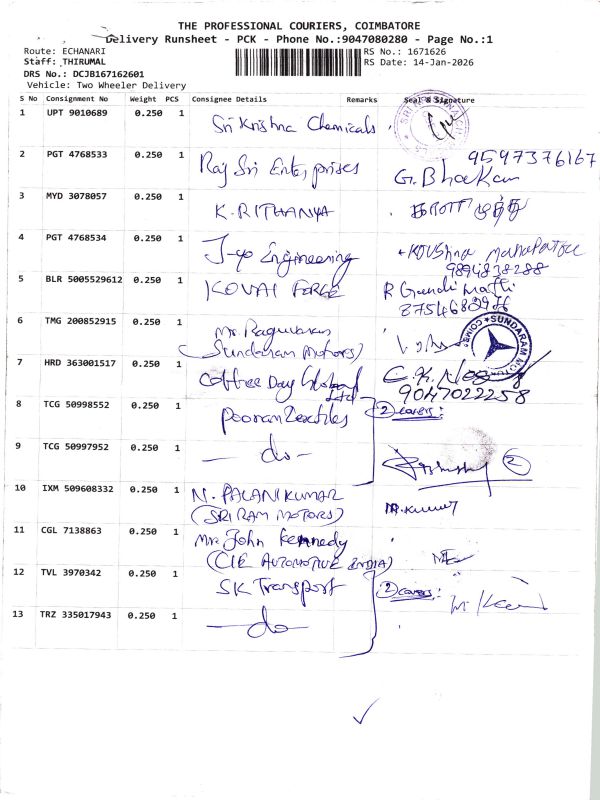 THE PROFESSIONAL COURIERS, COIMBATORE
Delivery Runsheet - PCK - Phone No.:9047080280 - Page No.:1
Route: ECHANARI
RS No.: 1671626
Staff: THIRUMAL
RS Date: 14-Jan-2026
DRS No.: DCJB167162601
Vehicle: Two Wheeler Delivery
S No Consignment No Weight PCS Consignee Details Remarks Seal & Signature
1 UPT 9010689 0.250 1 Sri Krishna Chemicals
2 PGT 4768533 0.250 1 Raj Sri Enterprises 9597376167
G. Bhaskar
3 MYD 3078057 0.250 1 K. RITHANYA
4 PGT 4768534 0.250 1 Engineering
9894838288
5 BLR 5005529612 0.250 1 KOVAI FORGE R Gandimathi
6 TMG 200852915 0.250 1 Mr. Raguvaran
(Sundaram Motors)
SUNDARAM MOTORS
7 HRD 363001517 0.250 1 Coffee Day Global Ltd
9047022258
8 TCG 50998552 0.250 1 Pooran Textiles 2 covers:
9 TCG 50997952 0.250 1 — do — 2
10 IXM 509608332 0.250 1 N. PALANIKUMAR
(SRIRAM MOTORS)
M. Kumar
11 CGL 7138863 0.250 1 Mr. John Kennedy
(CIE AUTOMOTIVE INDIA)
12 TVL 3970342 0.250 1 SK Transport 2 covers:
13 TRZ 335017943 0.250 1 — do —